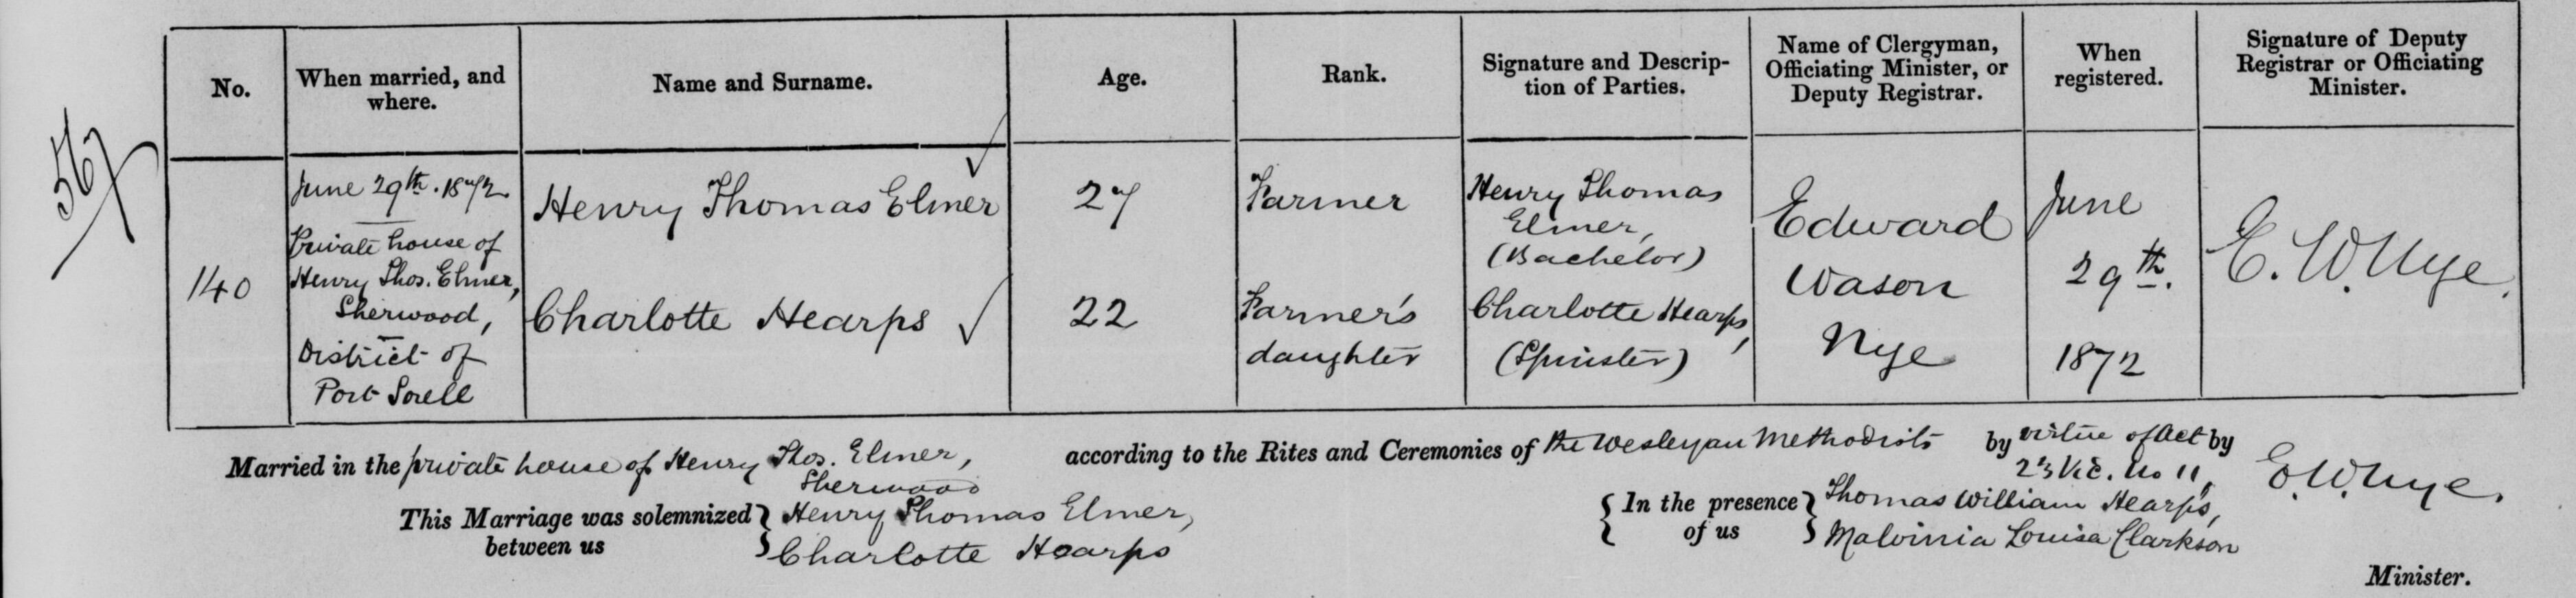 No.
When married, and
where.
Name and Surname.
Age.
Rank.
Signature and Descrip-
tion of Parties.
Name of Clergyman,
Officiating Minister, or
Deputy Registrar.
When
registered.
Signature of Deputy
Registrar or Officiating
Minister.
567
140
June 29th. 1872
Private house of
Henry Thos. Elmer,
Sherwood,
District of
Port Sorell
Henry Thomas Elmer
Charlotte Hearps
27
22
Farmer
Farmer's
daughter
Henry Thomas
Elmer,
(Bachelor)
Charlotte Hearps,
(Spinster)
Edward
Wason
Nye
June
29th.
1872
E. W. Nye.
Married in the private house of Henry Thos. Elmer, according to the Rites and Ceremonies of the Wesleyan Methodists by virtue of Act by
Sherwood
23 Vic. No 11,
E. W. Nye.
This Marriage was solemnized
between us
Henry Thomas Elmer,
Charlotte Hearps
In the presence
of us
Thomas William Hearps,
Malvinia Louisa Clarkson
Minister.